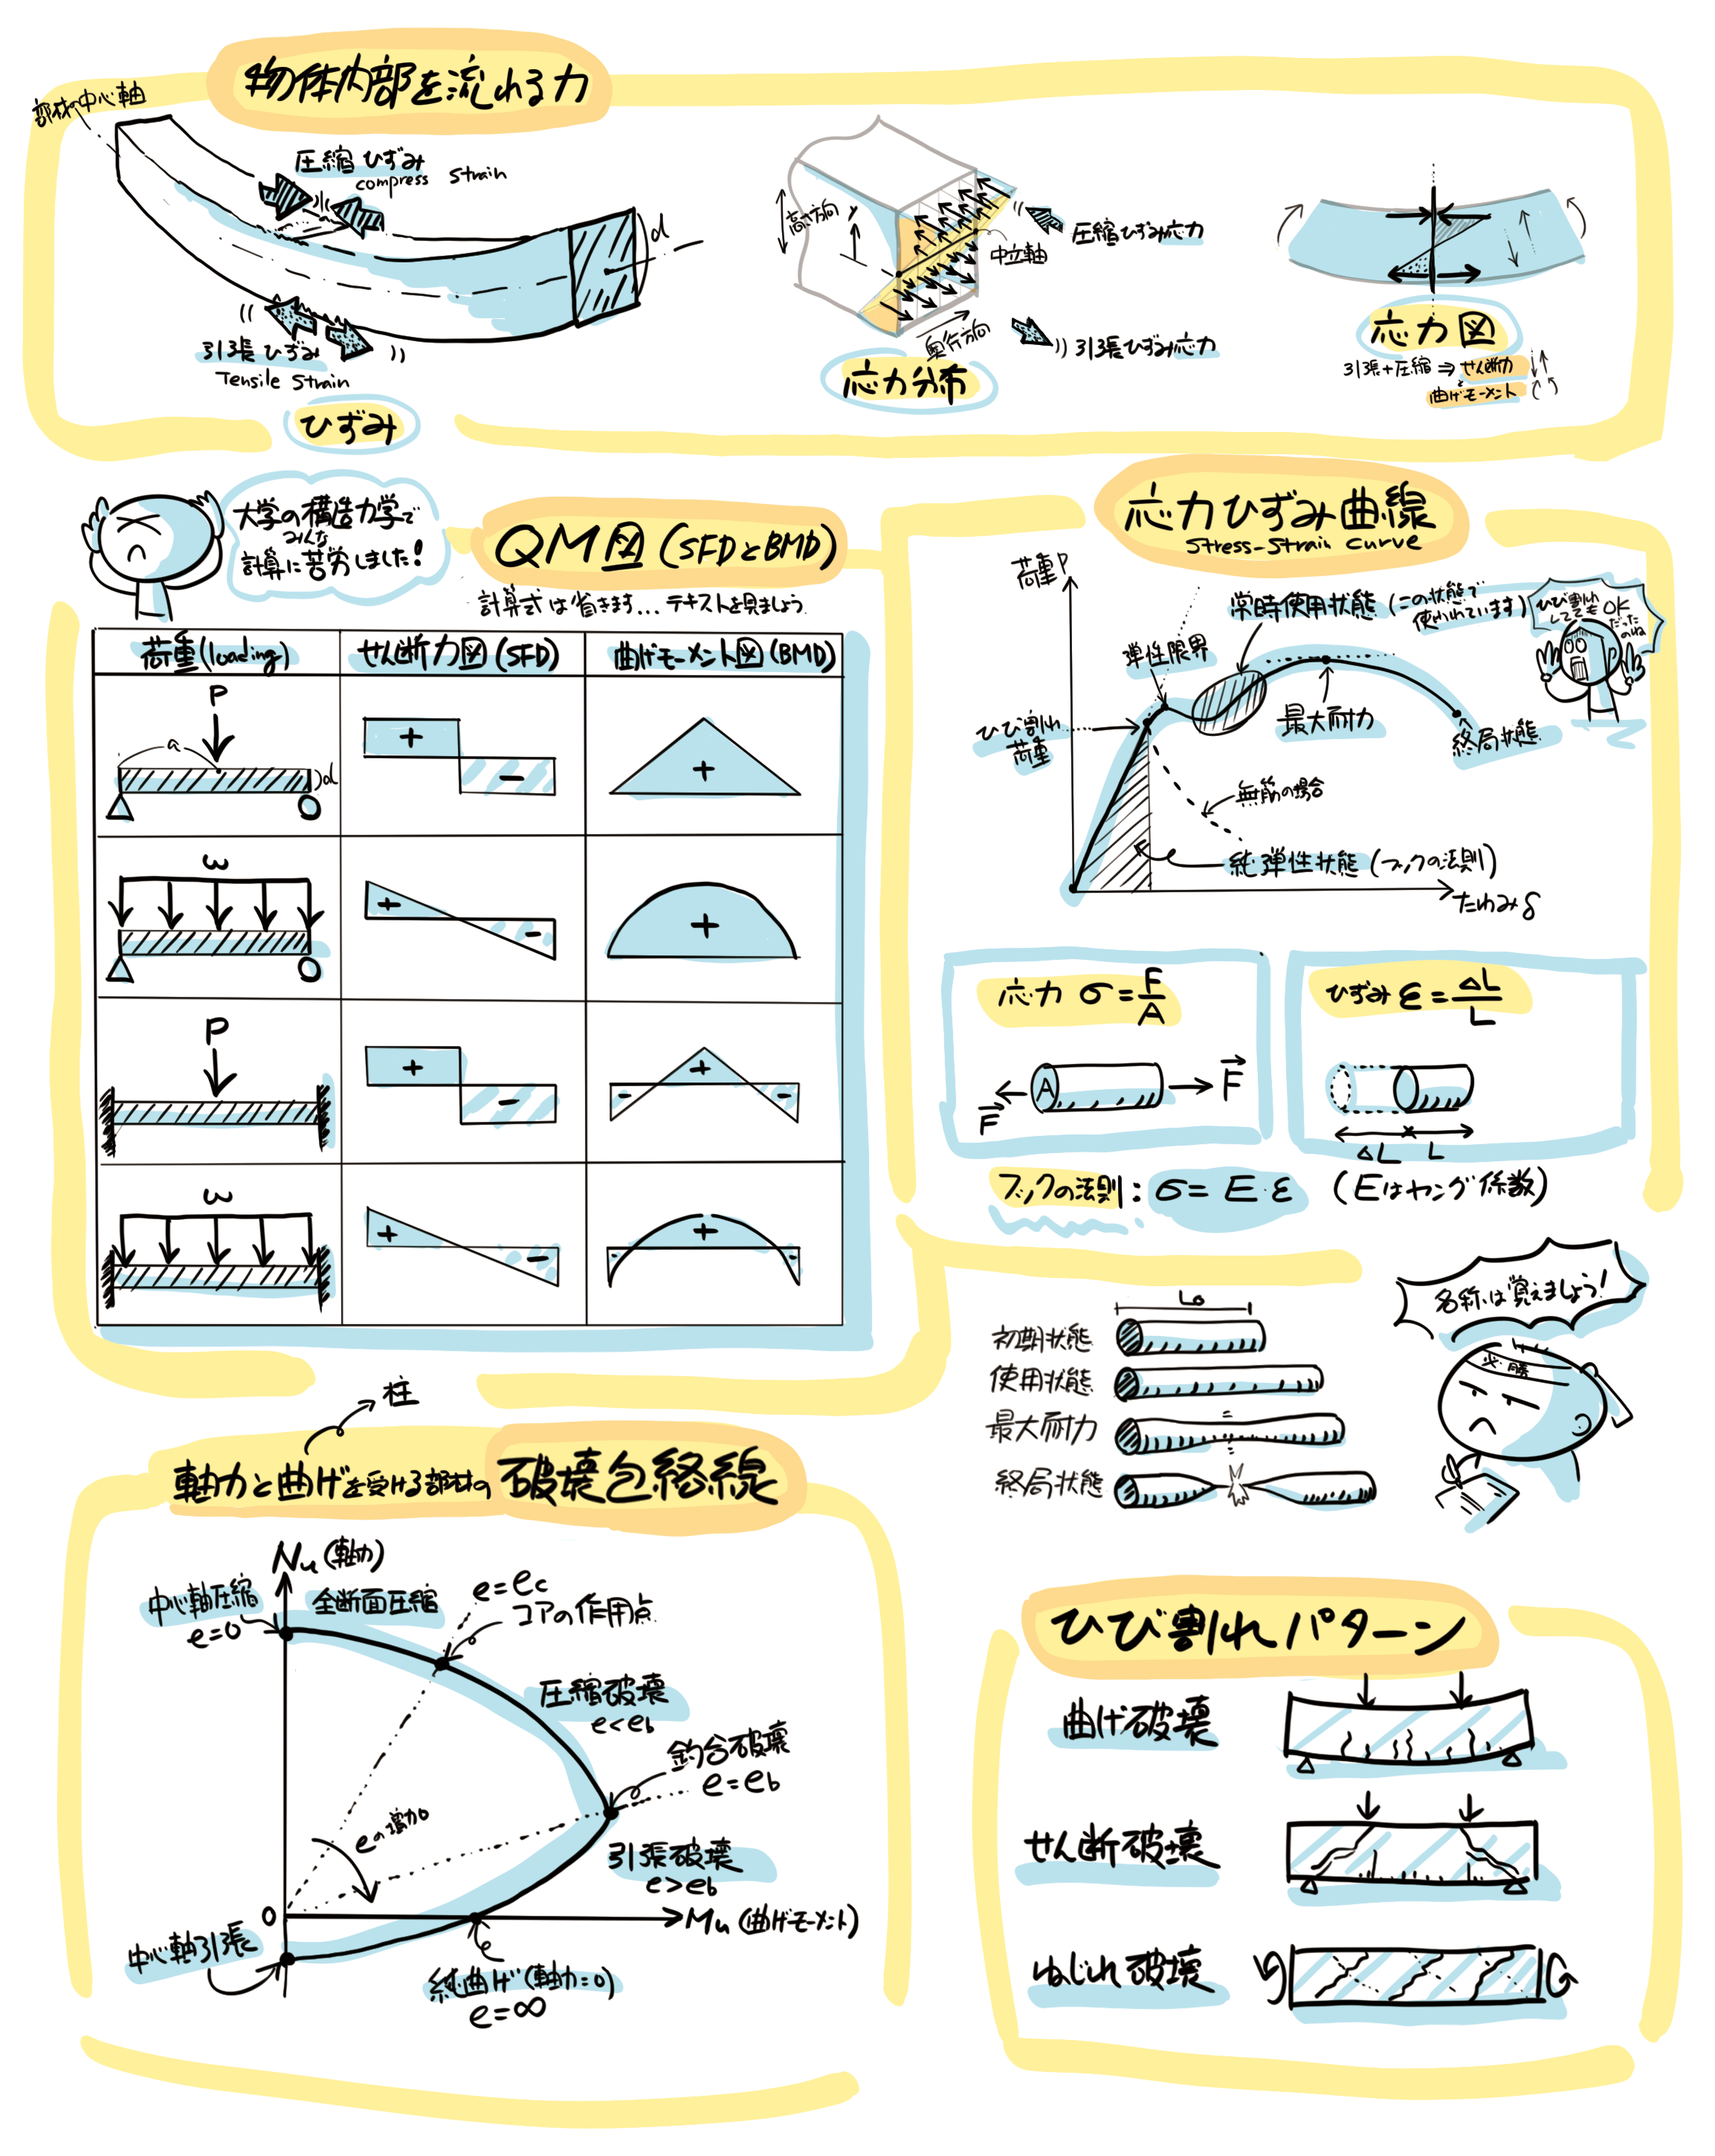 物体内部を流れる力
部材の中心軸
圧縮ひずみ
compress strain
d
引張ひずみ
Tensile strain
ひずみ
高さ方向
y
中立軸
圧縮ひずみ応力
奥行方向
引張ひずみ応力
応力分布
応力図
引張+圧縮⇒せん断力
と
曲げモーメント
大学の構造力学で
みんな
計算に苦労しました!
QM図(SFDとBMD)
計算式は省きます...テキストを見ましょう
荷重(loading)
せん断力図(SFD)
曲げモーメント図(BMD)
P
a
d
+
-
+
ω
+
-
+
P
+
-
- + -
ω
+
-
- + -
応力ひずみ曲線
Stress-Strain curve
荷重P
常時使用状態(この状態で
使われています)
ひび割れ
しててもOK
だった
のね
弾性限界
ひび割れ
荷重
最大耐力
終局状態
無筋の場合
純弾性状態(フックの法則)
たわみδ
応力 σ=F/A
A
F
F
ひずみ ε=ΔL/L
ΔL L
フックの法則:σ=E・ε (Eはヤング係数)
名称は覚えましょう!
必勝
L0
初期状態
使用状態
最大耐力
終局状態
柱
軸力と曲げを受ける部材の破壊包絡線
Nu(軸力)
中心軸圧縮
e=0
全断面圧縮
e=ec
コアの作用点
圧縮破壊
e<eb
釣合破壊
e=eb
eの増加
引張破壊
e>eb
0
Mu(曲げモーメント)
中心軸引張
純曲げ(軸力=0)
e=∞
ひび割れパターン
曲げ破壊
せん断破壊
ねじれ破壊